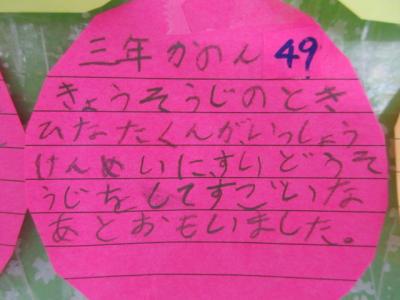 三年かのん 49
きょうそうじのとき
ひなたくんが、いっしょう
けんめいに、すいどうそ
うじをしてすごいな
あとおもいました。